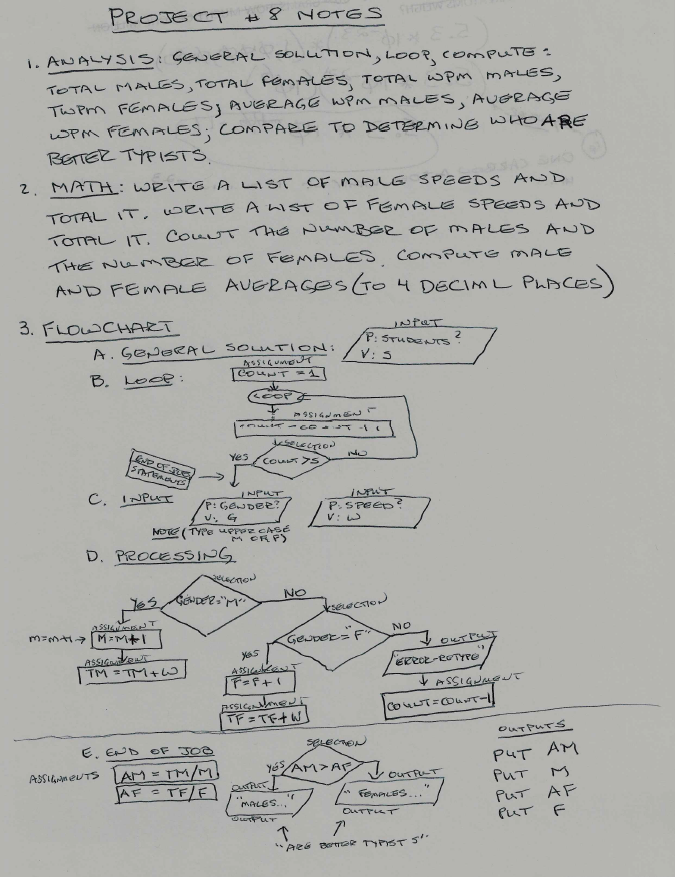 PROJECT #8 NOTES
1. ANALYSIS: GENERAL SOLUTION, LOOP, COMPUTE:
TOTAL MALES, TOTAL FEMALES, TOTAL WPM MALES,
TWPM FEMALES; AVERAGE WPM MALES, AVERAGE
WPM FEMALES; COMPARE TO DETERMINE WHO ARE
BETTER TYPISTS.
2. MATH: WRITE A LIST OF MALE SPEEDS AND
TOTAL IT. WRITE A LIST OF FEMALE SPEEDS AND
TOTAL IT. COUNT THE NUMBER OF MALES AND
THE NUMBER OF FEMALES. COMPUTE MALE
AND FEMALE AVERAGES (TO 4 DECIML PLACES)
3. FLOWCHART
INPUT
A. GENERAL SOLUTION:
P: STUDENTS?
V: S
ASSIGNMENT
B. LOOP:
COUNT = 1
LOOP
ASSIGNMENT
SELECTION
YES
COUNT > S
NO
END OF
STATEMENTS
C. INPUT
INPUT
P: GENDER?
V: G
INPUT
P: SPEED?
V: W
NOTE (TYPE UPPERCASE
M OR F)
D. PROCESSING
SELECTION
YES
GENDER="M"
NO
SELECTION
ASSIGNMENT
M=M+1
M=M+1
ASSIGNMENT
TM=TM+W
YES
GENDER="F"
NO
ASSIGNMENT
F=F+1
ASSIGNMENT
TF=TF+W
OUTPUT
"ERROR-RETYPE"
ASSIGNMENT
COUNT=COUNT-1
E. END OF JOB
ASSIGNMENTS
AM = TM/M
AF = TF/F
SELECTION
YES
AM > AF
OUTPUT
"MALES..."
OUTPUT
OUTPUT
"FEMALES..."
OUTPUT
"ARE BETTER TYPISTS"
OUTPUTS
PUT AM
PUT M
PUT AF
PUT F